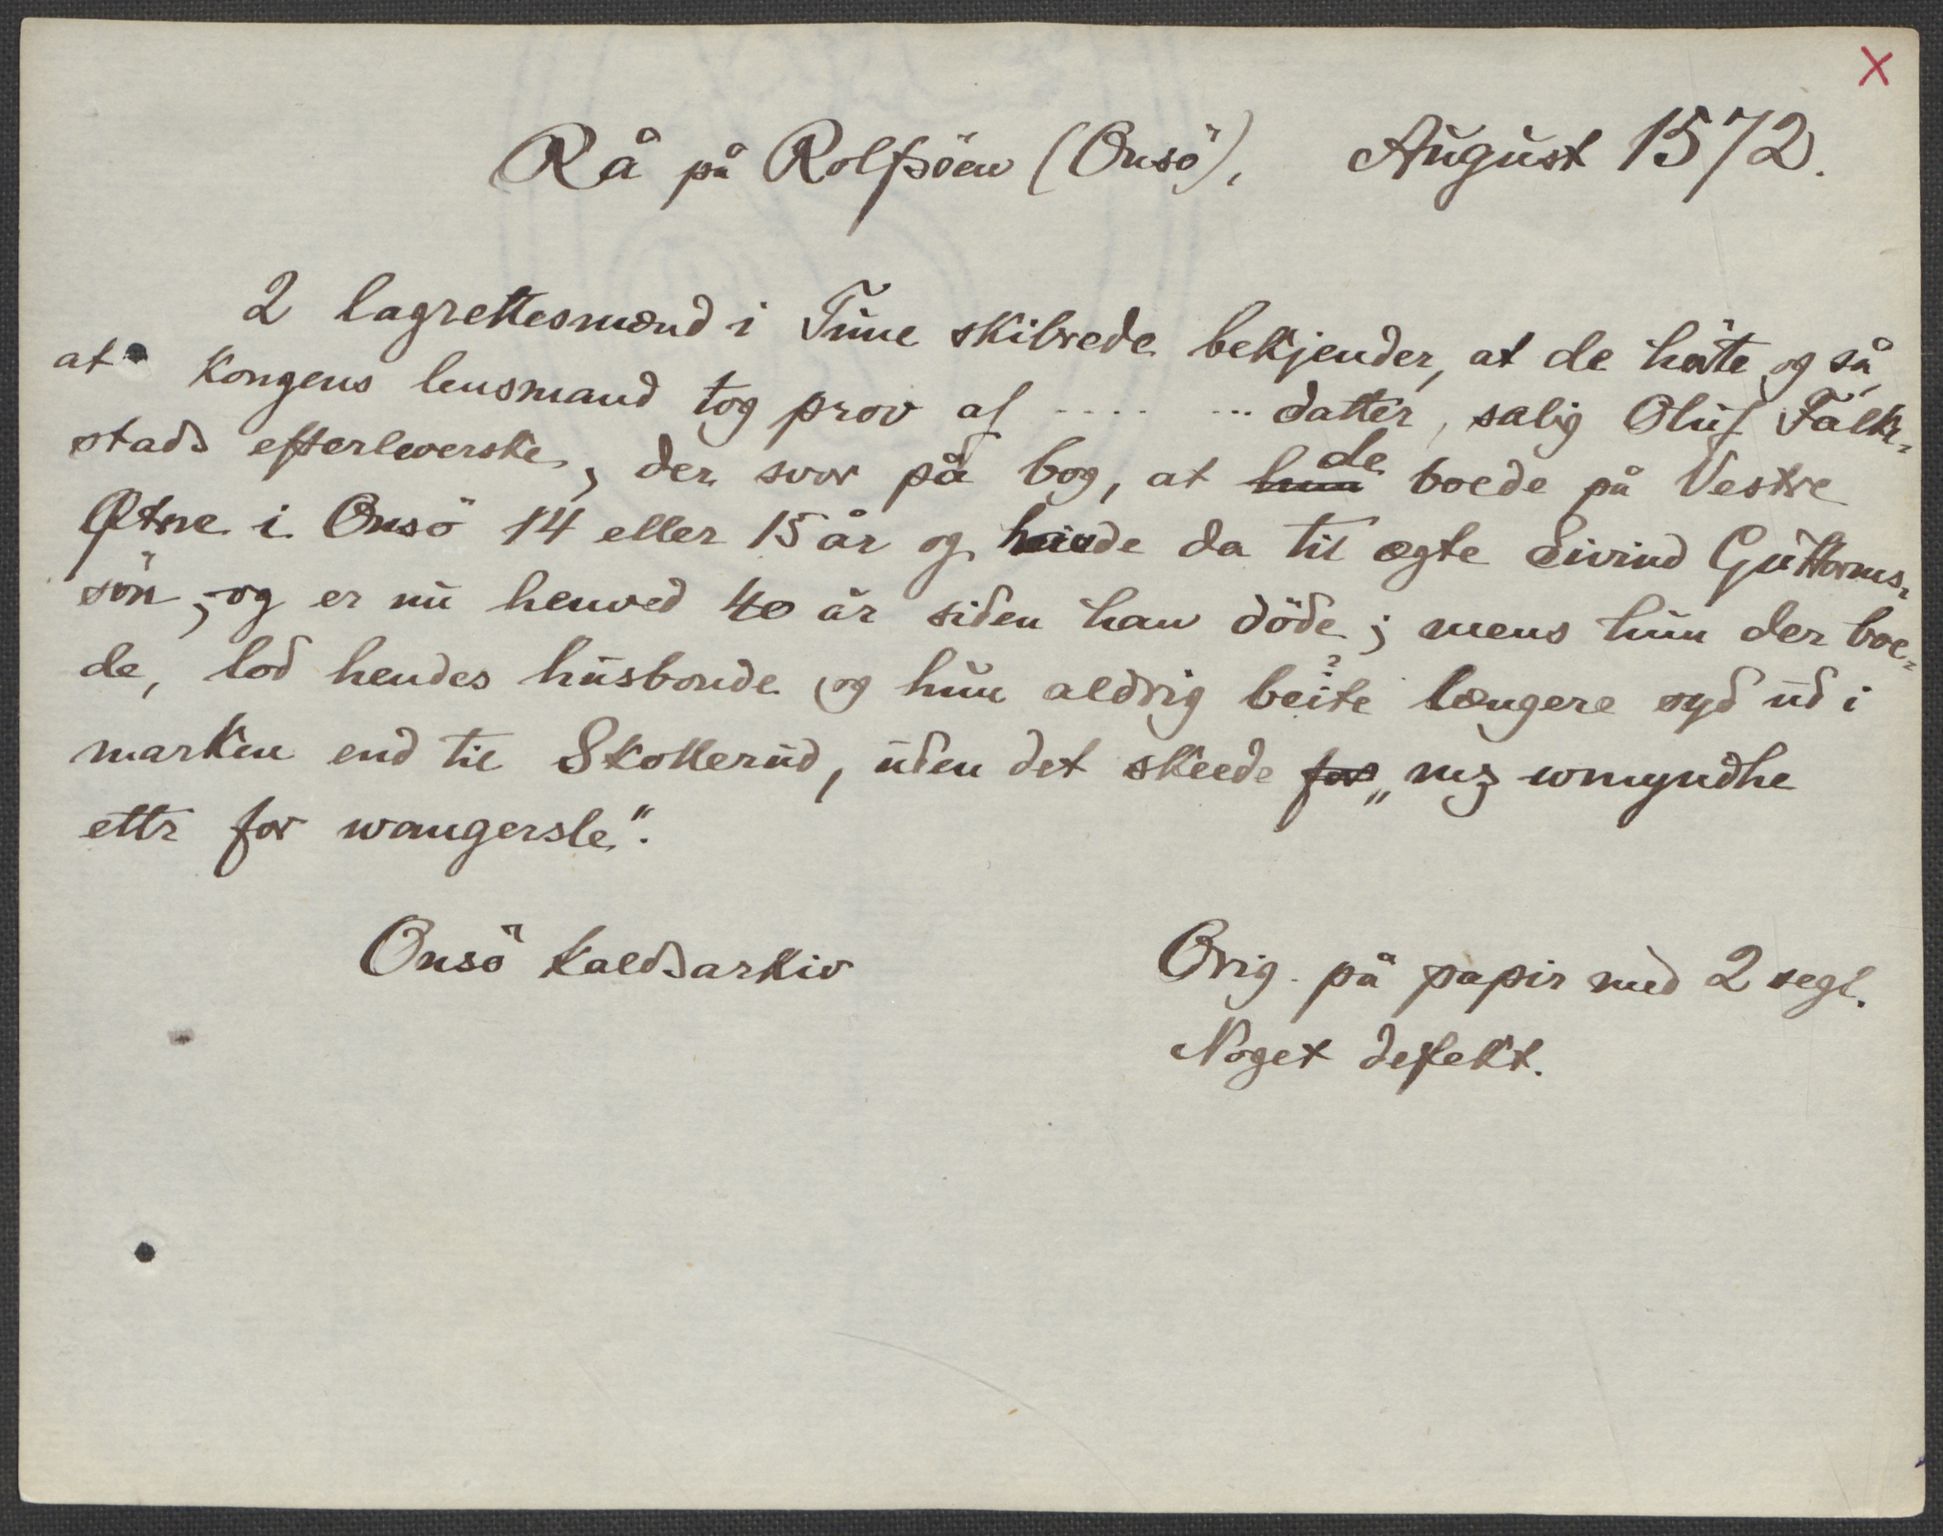 X
Rå på Rolfsöen (Onsö), August 1572.
2 lagrettesmænd i Tune skibrede bekjender, at de hörte og så,
at kongens lensmand tog prov af .... ... datter, salig Oluf Falk-
stads efterleverske, der svor på bog, at ~~hun~~ de boede på Vestre
Ø̨tne i Onsö 14 eller 15 år og havde da til ægte Eivind Guttorms-
sön, og er nu henved 40 år siden han döde; mens hun der boe-
de, lod hendes husbonde og hun aldrig beite ? længere syd ud i
marken end til Skollerud, uden det skeede ~~for~~ „mz wmyndhe
ettr for wangersle“.
Onsö kaldsarkiv
Orig. på papir med 2 segl.
Noget defekt.